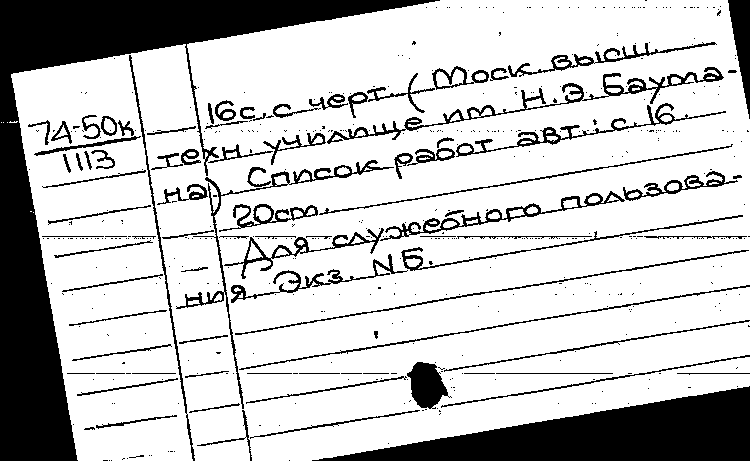 74-50к
1113
16с. с черт. (Моск. высш.
техн. училище им. Н.Э. Баума-
на). Список работ авт.: с. 16.
20cm.
Для служебного пользова-
ния. Экз. N Б.